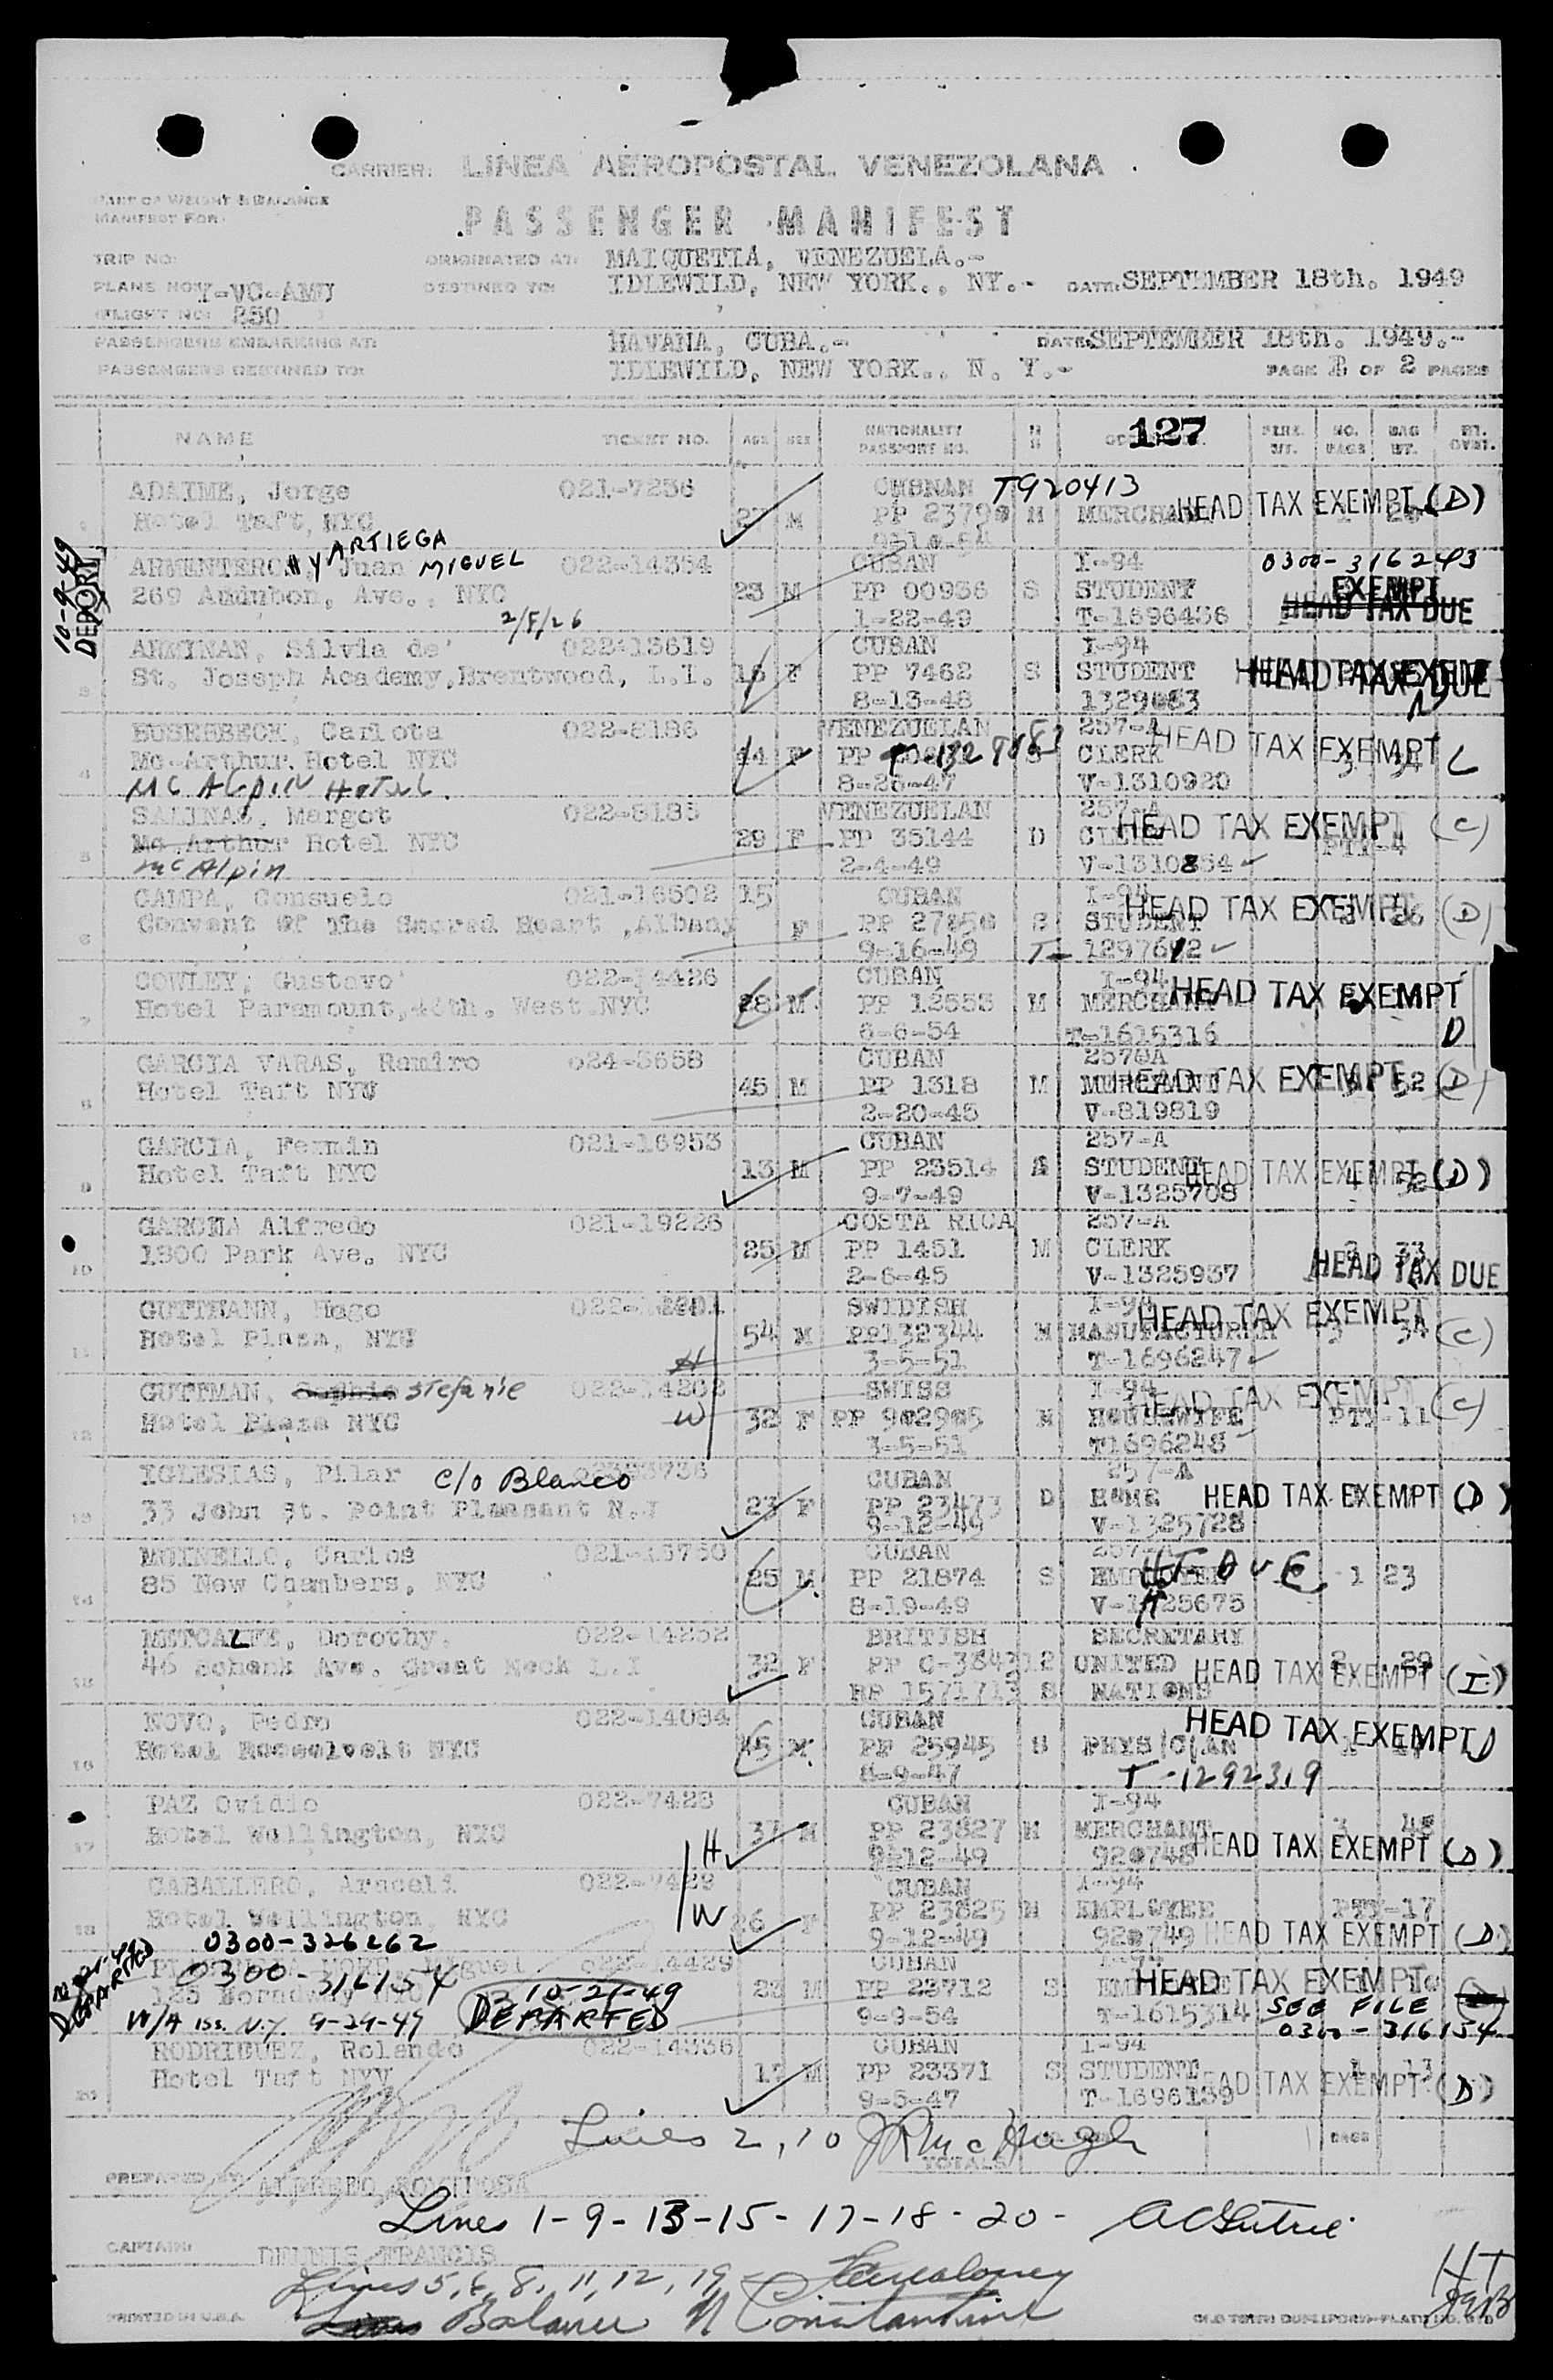 CARRIER: LINEA AEROPOSTAL VENEZOLANA
PART OF WEIGHT & BALANCE
MANIFEST FOR:
PASSENGER MANIFEST
TRIP NO: ORIGINATED AT: MAIQUETIA, VENEZUELA.-
PLANE NO: Y-VC-AMU DESTINED TO: IDLEWILD, NEW YORK., NY.- DATE: SEPTEMBER 18th. 1949
FLIGHT NO: 250
PASSENGERS EMBARKING AT: HAVANA, CUBA.- DATE: SEPTEMBER 18th. 1949.-
PASSENGERS DESTINED TO: IDLEWILD, NEW YORK., N. Y.- PAGE OF 2 PAGES
127
NAME TICKET NO. AGE SEX NATIONALITY NO. BAG
PASSPORT NO. PAGS WT. OVRT.
ADAIME, Jorge 021-7256 T920413
Hotel Taft, NYC 27 M PP M HEAD TAX EXEMPT (D)
ARTIEGA
Juan MIGUEL 022-14354 CUBAN I-94 0300-316243
269 Audubon, Ave., NYC 23 M PP 00936 S STUDENT EXEMPT
2/8/26 1-22-49 T-1696456 HEAD TAX DUE
10-9-49
DEPORT
ARMINAN, Silvia de 022-13619 CUBAN I-94
3 St. Joseph Academy, Brentwood, L.I. 16 F PP 7462 S STUDENT
8-13-48
Carlota 022-8186 VENEZUELAN 257-A
4 Mc.Arthur. Hotel NYC 44 F PP CLERK HEAD TAX EXEMPT C
Mc Alpin Hotel. 8-26-47 V-1310920
SALINAS, Margot 022-8185 VENEZUELAN 257-A HEAD TAX EXEMPT (C)
5 Mc.Arthur Hotel NYC 29 F PP 35144 D CLERK PTY-4
McAlpin 2-4-49 V-1310854
CAMPA, Consuelo 021-16502 15 CUBAN I-94 HEAD TAX EXEMPT (D)
6 Convent Of The Sacred Heart, Albany F PP 27850 S STUDENT
9-16-49 T-
COWLEY, Gustavo 022-14426 CUBAN I-94 HEAD TAX EXEMPT
7 Hotel Paramount, 46th. West NYC 28 M PP 12553 M MERCHANT
6-6-54 T-1615316 D
GARCIA VARAS, Ramiro 024-5658 CUBAN 257-A
8 Hotel Taft NYC 45 M PP 1318 M MERCHANT HEAD TAX EXEMPT 52 (D)
2-20-45 V-819819
GARCIA, Fermin 021-16953 CUBAN 257-A
9 Hotel Taft NYC 13 M PP 23514 STUDENT HEAD TAX EXEMPT (D)
9-7-49 V-1325708
GARCIA Alfredo 021-19226 COSTA RICA 257-A
10 1800 Park Ave. NYC 25 M PP 1451 M CLERK
2-6-45 V-1325937 HEAD TAX DUE
GUTTMANN, Hugo SWIDISH I-94 HEAD TAX EXEMPT
11 Hotel Plaza, NYC 54 M PP132344 M MANUFACTURER 3 34 (C)
H 3-5-51 T-1696247
GUTTMAN, Stefanie 022-14202 SWISS I-94 HEAD TAX EXEMPT (C)
12 Hotel Plaza NYC W 32 F PP 902905 M HOUSEWIFE PTY-11
3-5-51 T1696248
IGLESIAS, Pilar c/o Blanco CUBAN 257-A
13 33 John St. Point Pleasant N.J 23 F PP 23473 D HEAD TAX EXEMPT (D)
9-12-49 V-1325728
MOINELLO, Carlos CUBAN 257-A
14 85 New Chambers, NYC 25 M PP 21874 S EMPLOYEE HT DUE 1 23
8-19-49
METCALFE, Dorothy. 022-14252 BRITISH SECRETARY
15 46 Schenk Ave. Great Neck L.I 32 F UNITED HEAD TAX EXEMPT (I)
RP S NATIONS
NOVO, Pedro 022-14084 CUBAN
16 Hotel Roosevelt NYC 45 M PP 25945 S PHYSICIAN HEAD TAX EXEMPT D
8-9-47 T-1292319
PAZ Ovidio 022-7428 CUBAN I-94
17 Hotel Wellington, NYC H 37 M PP 23827 M MERCHANT HEAD TAX EXEMPT (D)
9-12-49 920748
CABALLERO, Araceli 022-7429 CUBAN I-94
18 Hotel Wellington, NYC W 26 F PP 23825 M EMPLOYEE PTY-17
0300-326262 9-12-49 920749 HEAD TAX EXEMPT (D)
DEPARTED
Miguel 022-14429 CUBAN I-94
0300-316154 23 M PP 23712 S HEAD TAX EXEMPT
W/A iss. N.Y. 10-21-49 DEPARTED 9-9-54 T-1615314 SEE FILE
0300-316154
RODRIGUEZ, Rolando 022-14336 CUBAN I-94
20 Hotel Taft NYV 17 M PP 23371 S STUDENT HEAD TAX EXEMPT (D)
9-5-47 T-1696159
Lines 2, 10 JR McHugh
TOTALS BAGS
PREPARED BY:
Lines 1-9-13-15-17-18-20-
CAPTAIN: DENNIS FRANCIS
Lines 5, 6, 8, 11, 12, 19
Balance N Constantine
HT
PRINTED IN U.S.A.